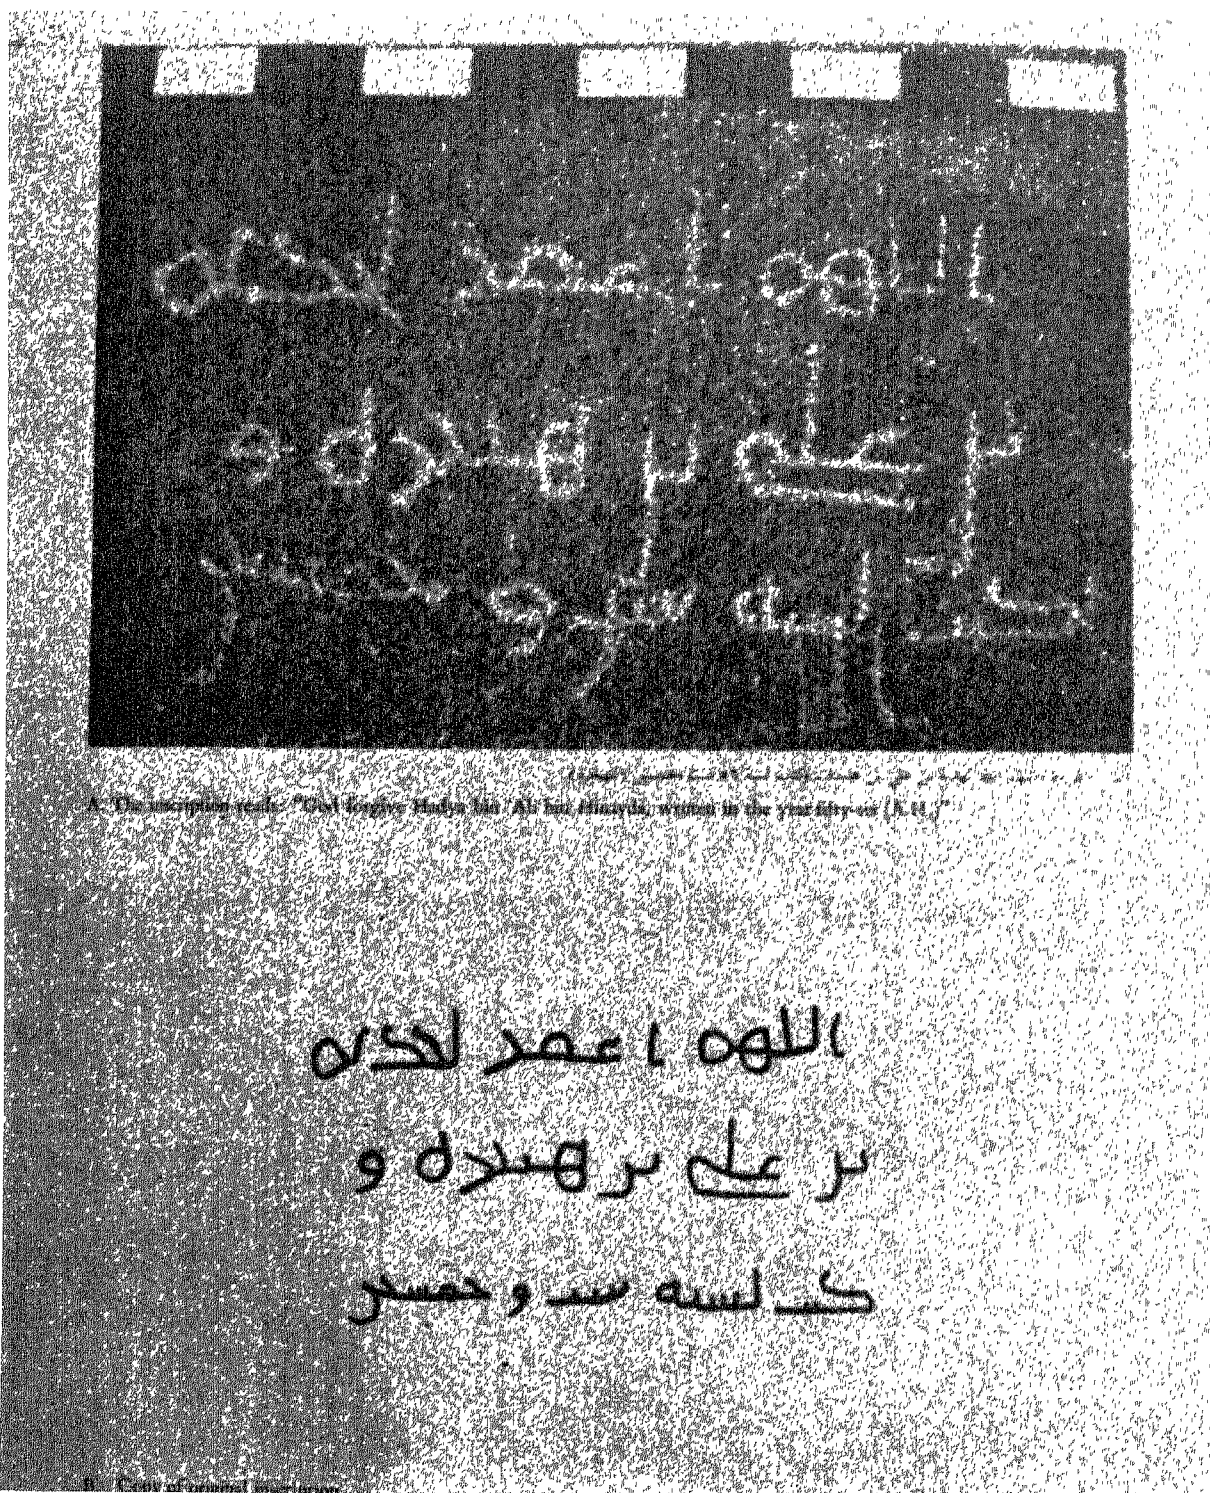 اللهم اغفر لحديه
بن علي بن هنيده و
كتب لسنه ست و خمسين
A: The inscription reads: "God forgive Hadya bin 'Ali bin Hinayda, written in the year fifty-six (A.H.)"
اللهم اغفر لحديه
بن علي بن هنيده و
كتب لسنه ست و خمسين
B: Copy of original inscription